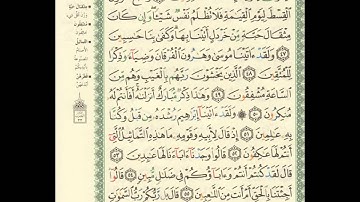 ٱلْقِسْطَ لِيَوْمِ ٱلْقِيَٰمَةِ فَلَا تُظْلَمُ نَفْسٌ شَيْـًٔا وَإِن كَانَ
مِثْقَالَ حَبَّةٍ مِّنْ خَرْدَلٍ أَتَيْنَا بِهَا وَكَفَىٰ بِنَا حَٰسِبِينَ
٤٧ وَلَقَدْ ءَاتَيْنَا مُوسَىٰ وَهَٰرُونَ ٱلْفُرْقَانَ وَضِيَآءً وَذِكْرًا
لِّلْمُتَّقِينَ ٤٨ ٱلَّذِينَ يَخْشَوْنَ رَبَّهُم بِٱلْغَيْبِ وَهُم مِّنَ
ٱلسَّاعَةِ مُشْفِقُونَ ٤٩ وَهَٰذَا ذِكْرٌ مُّبَارَكٌ أَنزَلْنَٰهُ أَفَأَنتُمْ لَهُۥ
مُنكِرُونَ ٥٠ وَلَقَدْ ءَاتَيْنَآ إِبْرَٰهِيمَ رُشْدَهُۥ مِن قَبْلُ وَكُنَّا
بِهِۦ عَٰلِمِينَ ٥١ إِذْ قَالَ لِأَبِيهِ وَقَوْمِهِۦ مَا هَٰذِهِ ٱلتَّمَاثِيلُ ٱلَّتِىٓ
أَنتُمْ لَهَا عَٰكِفُونَ ٥٢ قَالُوا۟ وَجَدْنَآ ءَابَآءَنَا لَهَا عَٰبِدِينَ ٥٣
قَالَ لَقَدْ كُنتُمْ أَنتُمْ وَءَابَآؤُكُمْ فِى ضَلَٰلٍ مُّبِينٍ ٥٤ قَالُوٓا۟
أَجِئْتَنَا بِٱلْحَقِّ أَمْ أَنتَ مِنَ ٱللَّٰعِبِينَ ٥٥ قَالَ بَل رَّبُّكُمْ رَبُّ ٱلسَّمَٰوَٰتِ